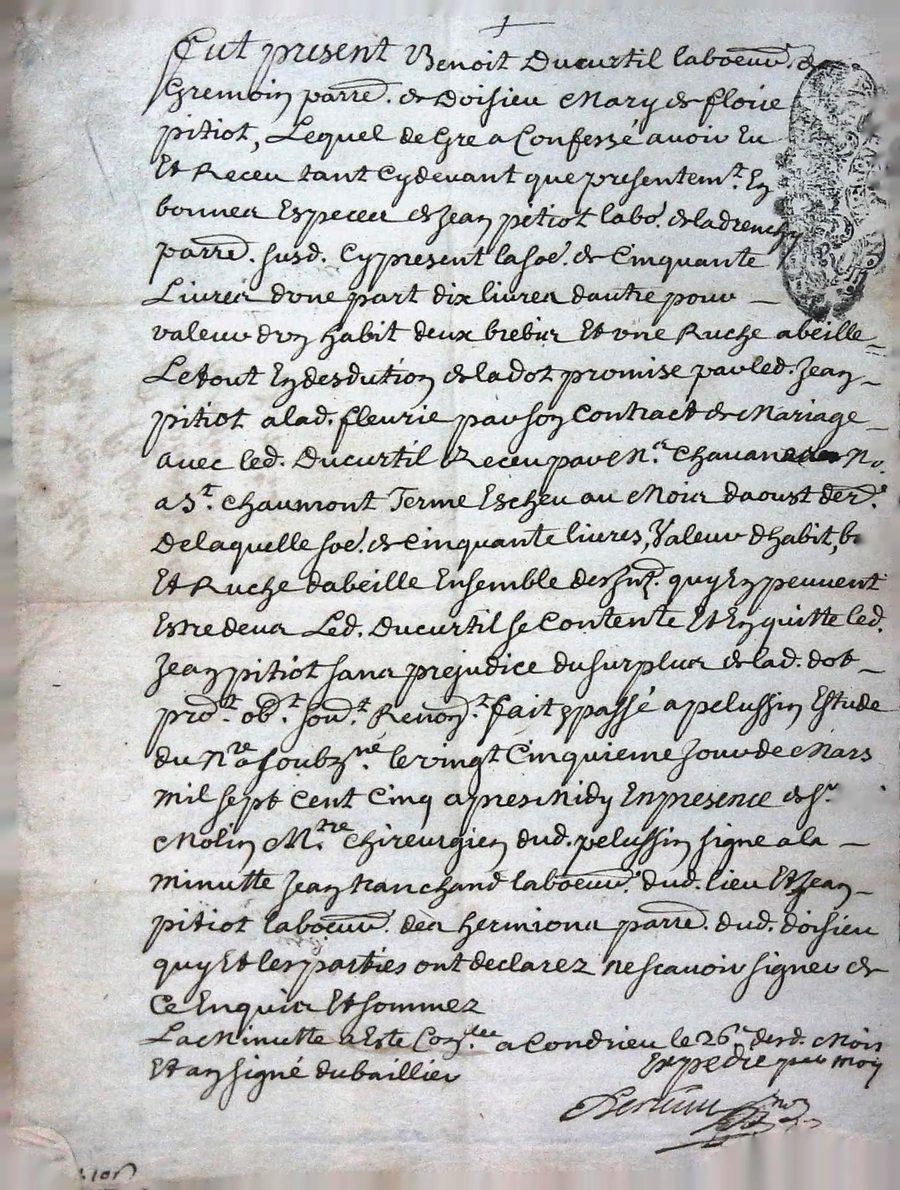 Fut present Benoit Ducurtil laboeur. de
Gremoin parre. de Doisieu Mary de floire
pitiot, Lequel de Gre a Confessé avoir Eu
Et Receu tant Cydevant que presentemt. En
bonnes Especes de Jean pitiot labo. deladrenchy
parre. susd. Cy present la soe. de Cinquante
Livres dune part dix livres dautre pour
valeur dun habit deux brebis Et une Ruche abeille
Le tout En desdution de la dot promise par led. Jean
pitiot a lad. fleurie par son Contract de Mariage
avec led. Ducurtil Receu par Me. Chavan No.
a St. Chaumont Terme Escheu au Mois daoust der.e
De laquelle soe. de Cinquante livres, Valeur dhabit, b
Et Ruche dabeille Ensemble des Int. quy En peuvent
Estre deus Led. Ducurtil se Contente Et En quitte led.
Jean pitiot sans prejudice du surplus de lad. dot
prot. obt. sout. Renont. fait & passé a pelussin Estude
du Nre. a soubzné. le vingt Cinquieme Jour de Mars
mil sept Cent Cinq apres Midy En presence de Sr.
Molin Mtre. Chireurgien dud. pelussin signe a la
minutte Jean tranchand laboeur. dud. lieu Et Jean
pitiot laboeur. des hermiona parre. dud. doisieu
quy Et les parties ont declarez ne scavoir signer de
Ce Enquis Et sommez
La Minutte a Este Conlée a Condrieu le 26e desd. Mois
Et an signé dubaillier Expedié par moy